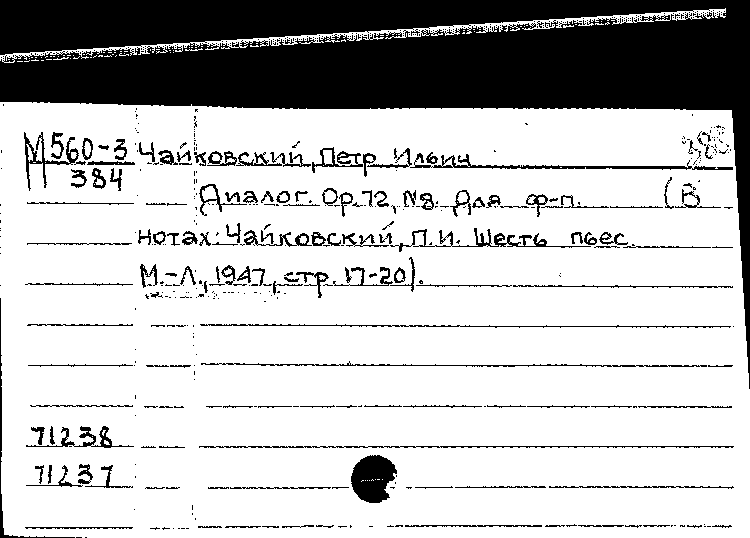 М560-3 Чайковский, Петр Ильич 388
384
Диалог. Op.72, №8. Для ф-п. (В
нотах: Чайковский, П.И. Шесть пьес.
М.-Л., 1947, стр. 17-20).
71238
71237